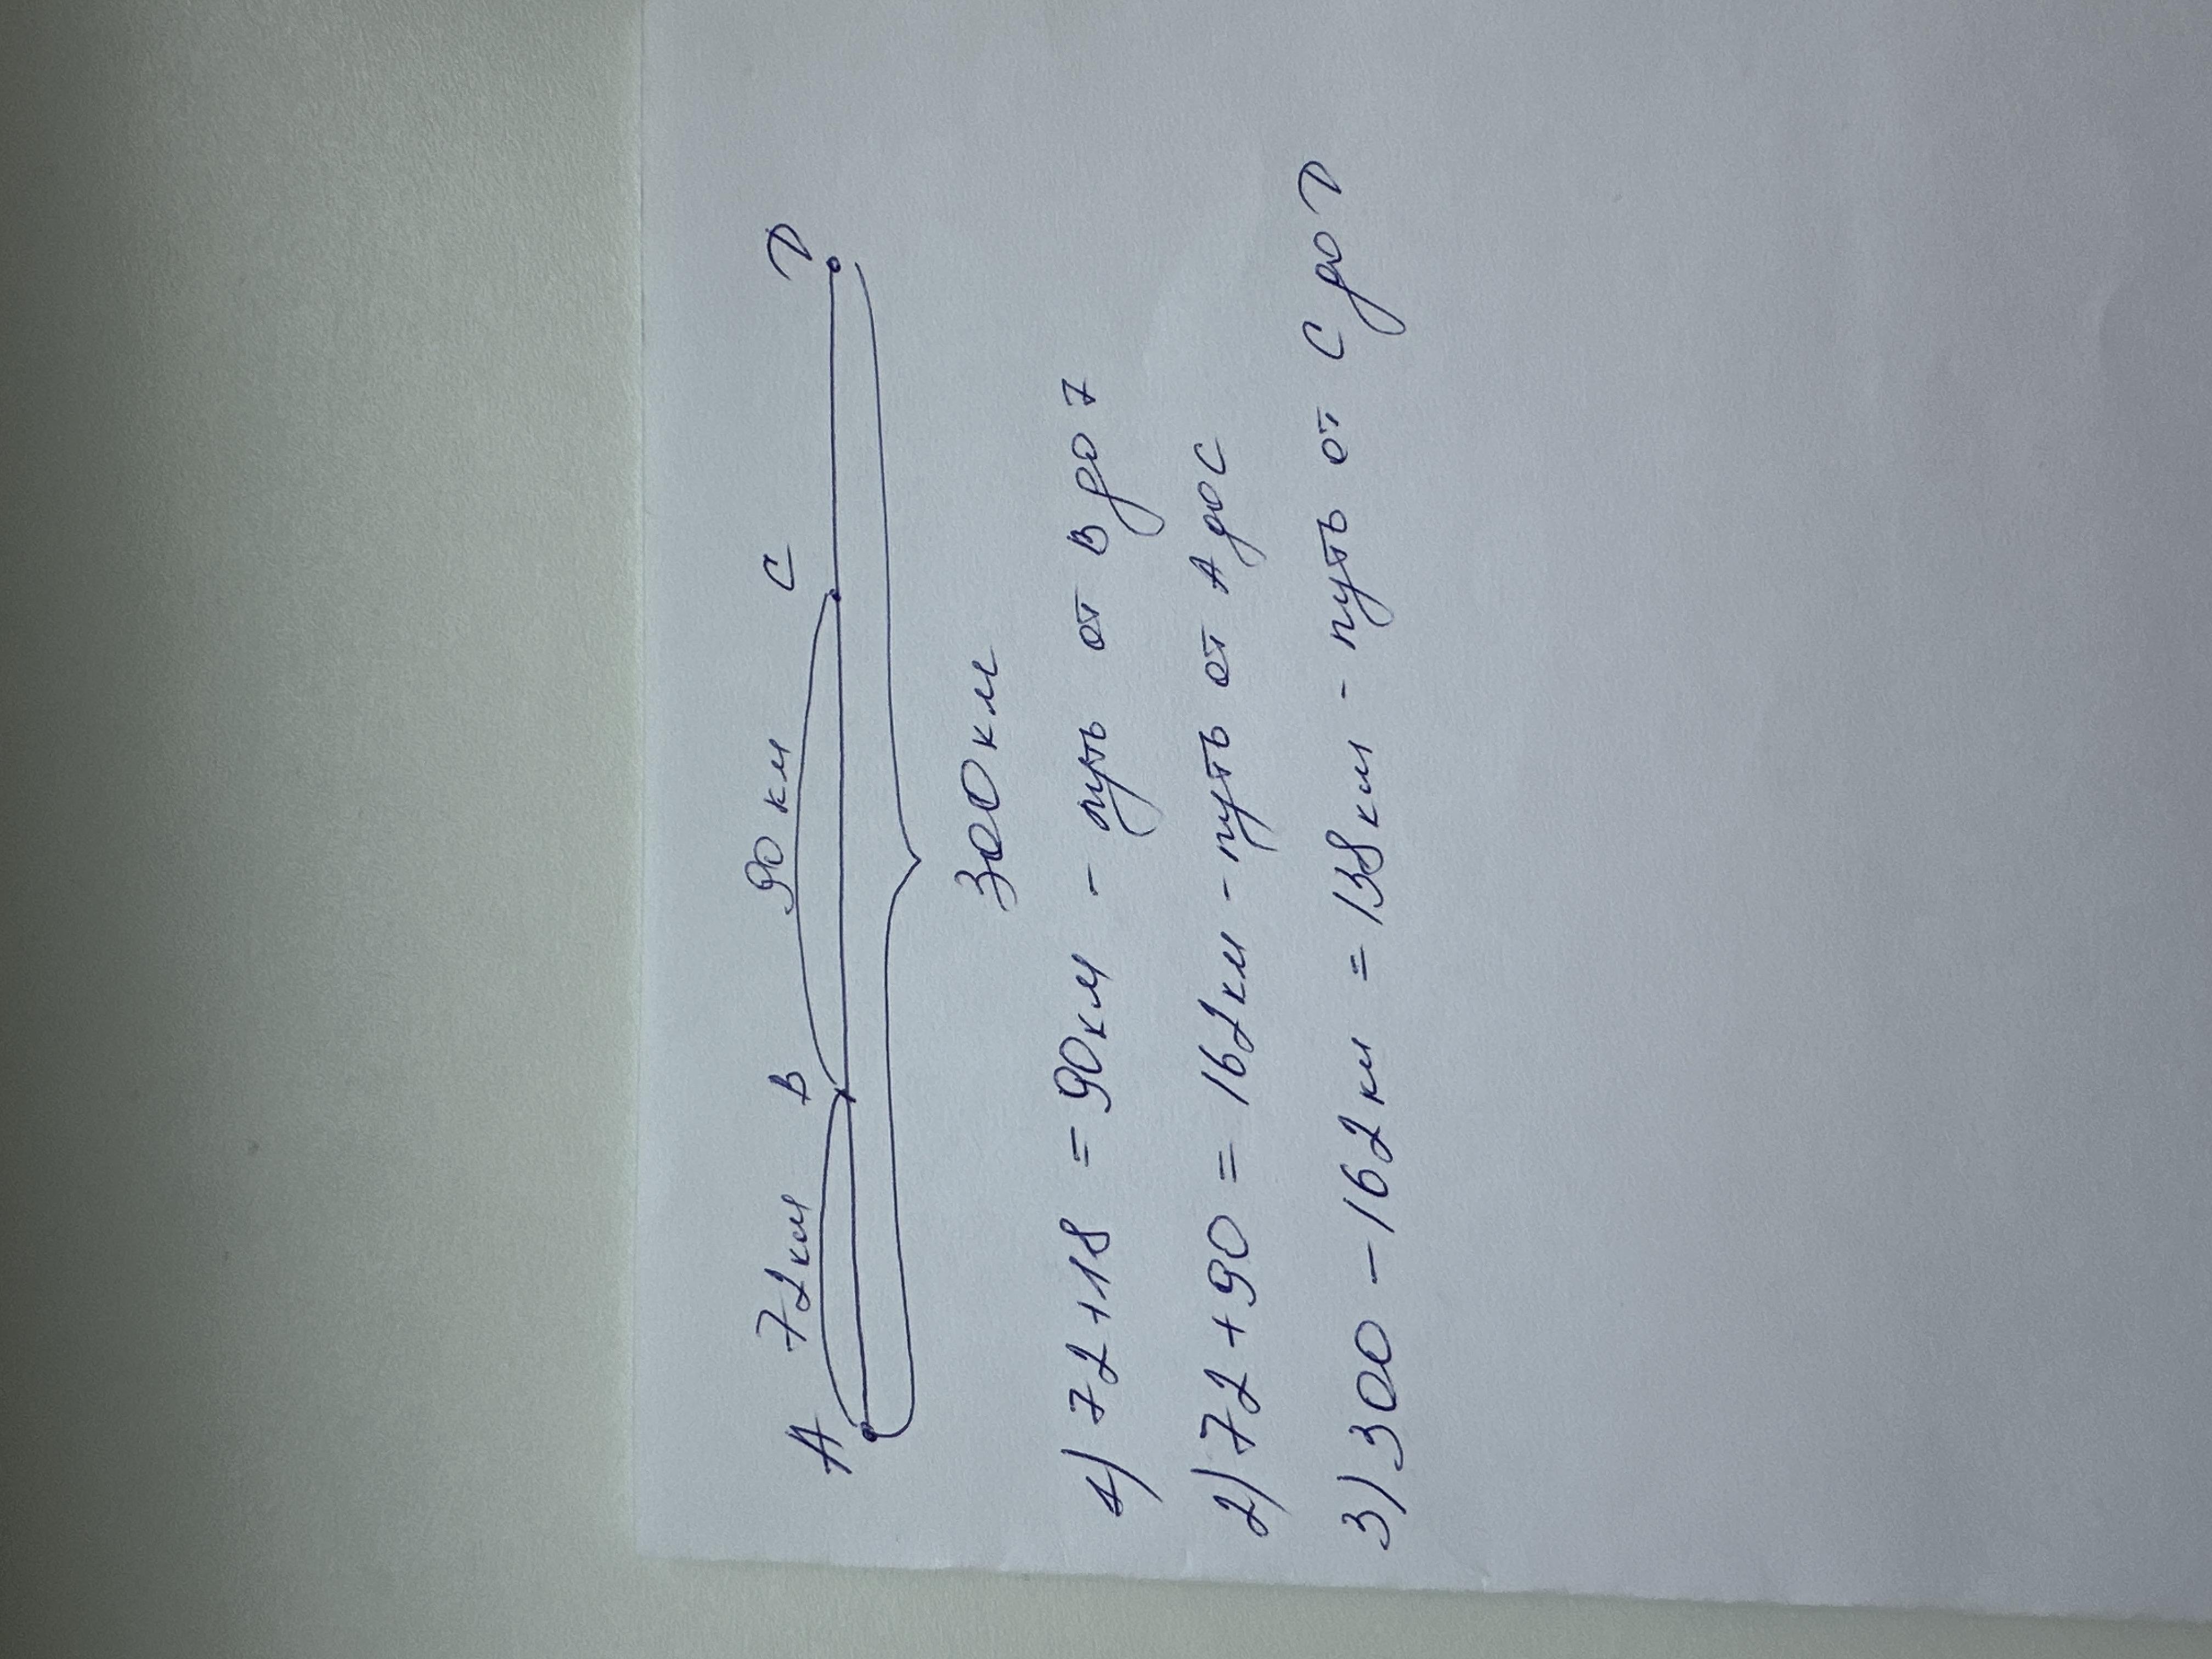 A 72км B 90км C D
300км
1) 72+18 = 90км - путь от B до 7
2) 72+90 = 162км - путь от A до C
3) 300-162км = 138км - путь от C до D